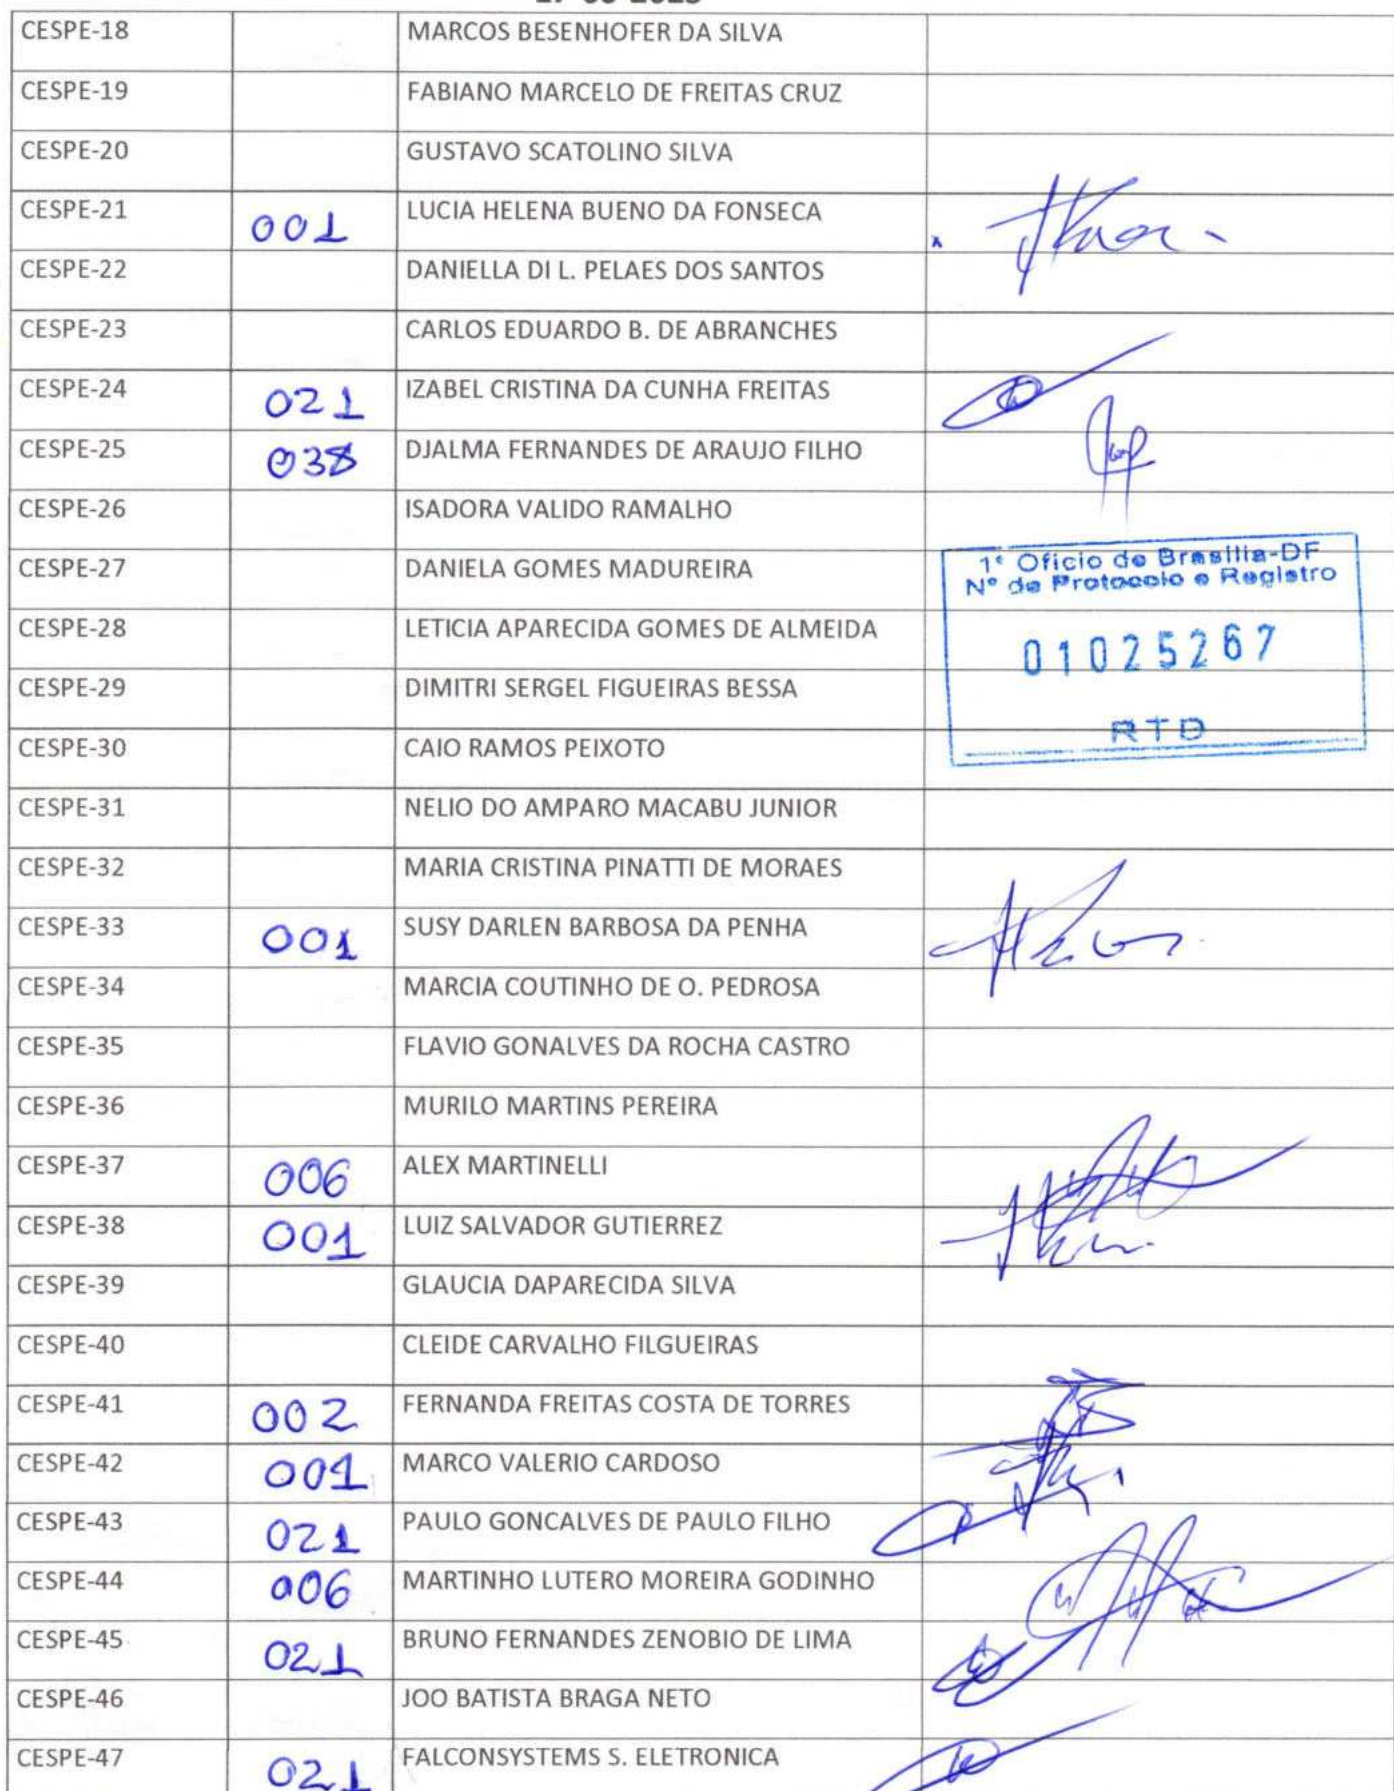 CESPE-18 MARCOS BESENHOFER DA SILVA
CESPE-19 FABIANO MARCELO DE FREITAS CRUZ
CESPE-20 GUSTAVO SCATOLINO SILVA
CESPE-21 001 LUCIA HELENA BUENO DA FONSECA
CESPE-22 DANIELLA DI L. PELAES DOS SANTOS
CESPE-23 CARLOS EDUARDO B. DE ABRANCHES
CESPE-24 021 IZABEL CRISTINA DA CUNHA FREITAS
CESPE-25 038 DJALMA FERNANDES DE ARAUJO FILHO
CESPE-26 ISADORA VALIDO RAMALHO
CESPE-27 DANIELA GOMES MADUREIRA
1º Oficio de Brasilia-DF
Nº de Protocolo e Registro
CESPE-28 LETICIA APARECIDA GOMES DE ALMEIDA
01025267
CESPE-29 DIMITRI SERGEL FIGUEIRAS BESSA
RTD
CESPE-30 CAIO RAMOS PEIXOTO
CESPE-31 NELIO DO AMPARO MACABU JUNIOR
CESPE-32 MARIA CRISTINA PINATTI DE MORAES
CESPE-33 001 SUSY DARLEN BARBOSA DA PENHA
CESPE-34 MARCIA COUTINHO DE O. PEDROSA
CESPE-35 FLAVIO GONALVES DA ROCHA CASTRO
CESPE-36 MURILO MARTINS PEREIRA
CESPE-37 006 ALEX MARTINELLI
CESPE-38 001 LUIZ SALVADOR GUTIERREZ
CESPE-39 GLAUCIA DAPARECIDA SILVA
CESPE-40 CLEIDE CARVALHO FILGUEIRAS
CESPE-41 002 FERNANDA FREITAS COSTA DE TORRES
CESPE-42 001 MARCO VALERIO CARDOSO
CESPE-43 021 PAULO GONCALVES DE PAULO FILHO
CESPE-44 006 MARTINHO LUTERO MOREIRA GODINHO
CESPE-45 021 BRUNO FERNANDES ZENOBIO DE LIMA
CESPE-46 JOO BATISTA BRAGA NETO
CESPE-47 021 FALCONSYSTEMS S. ELETRONICA